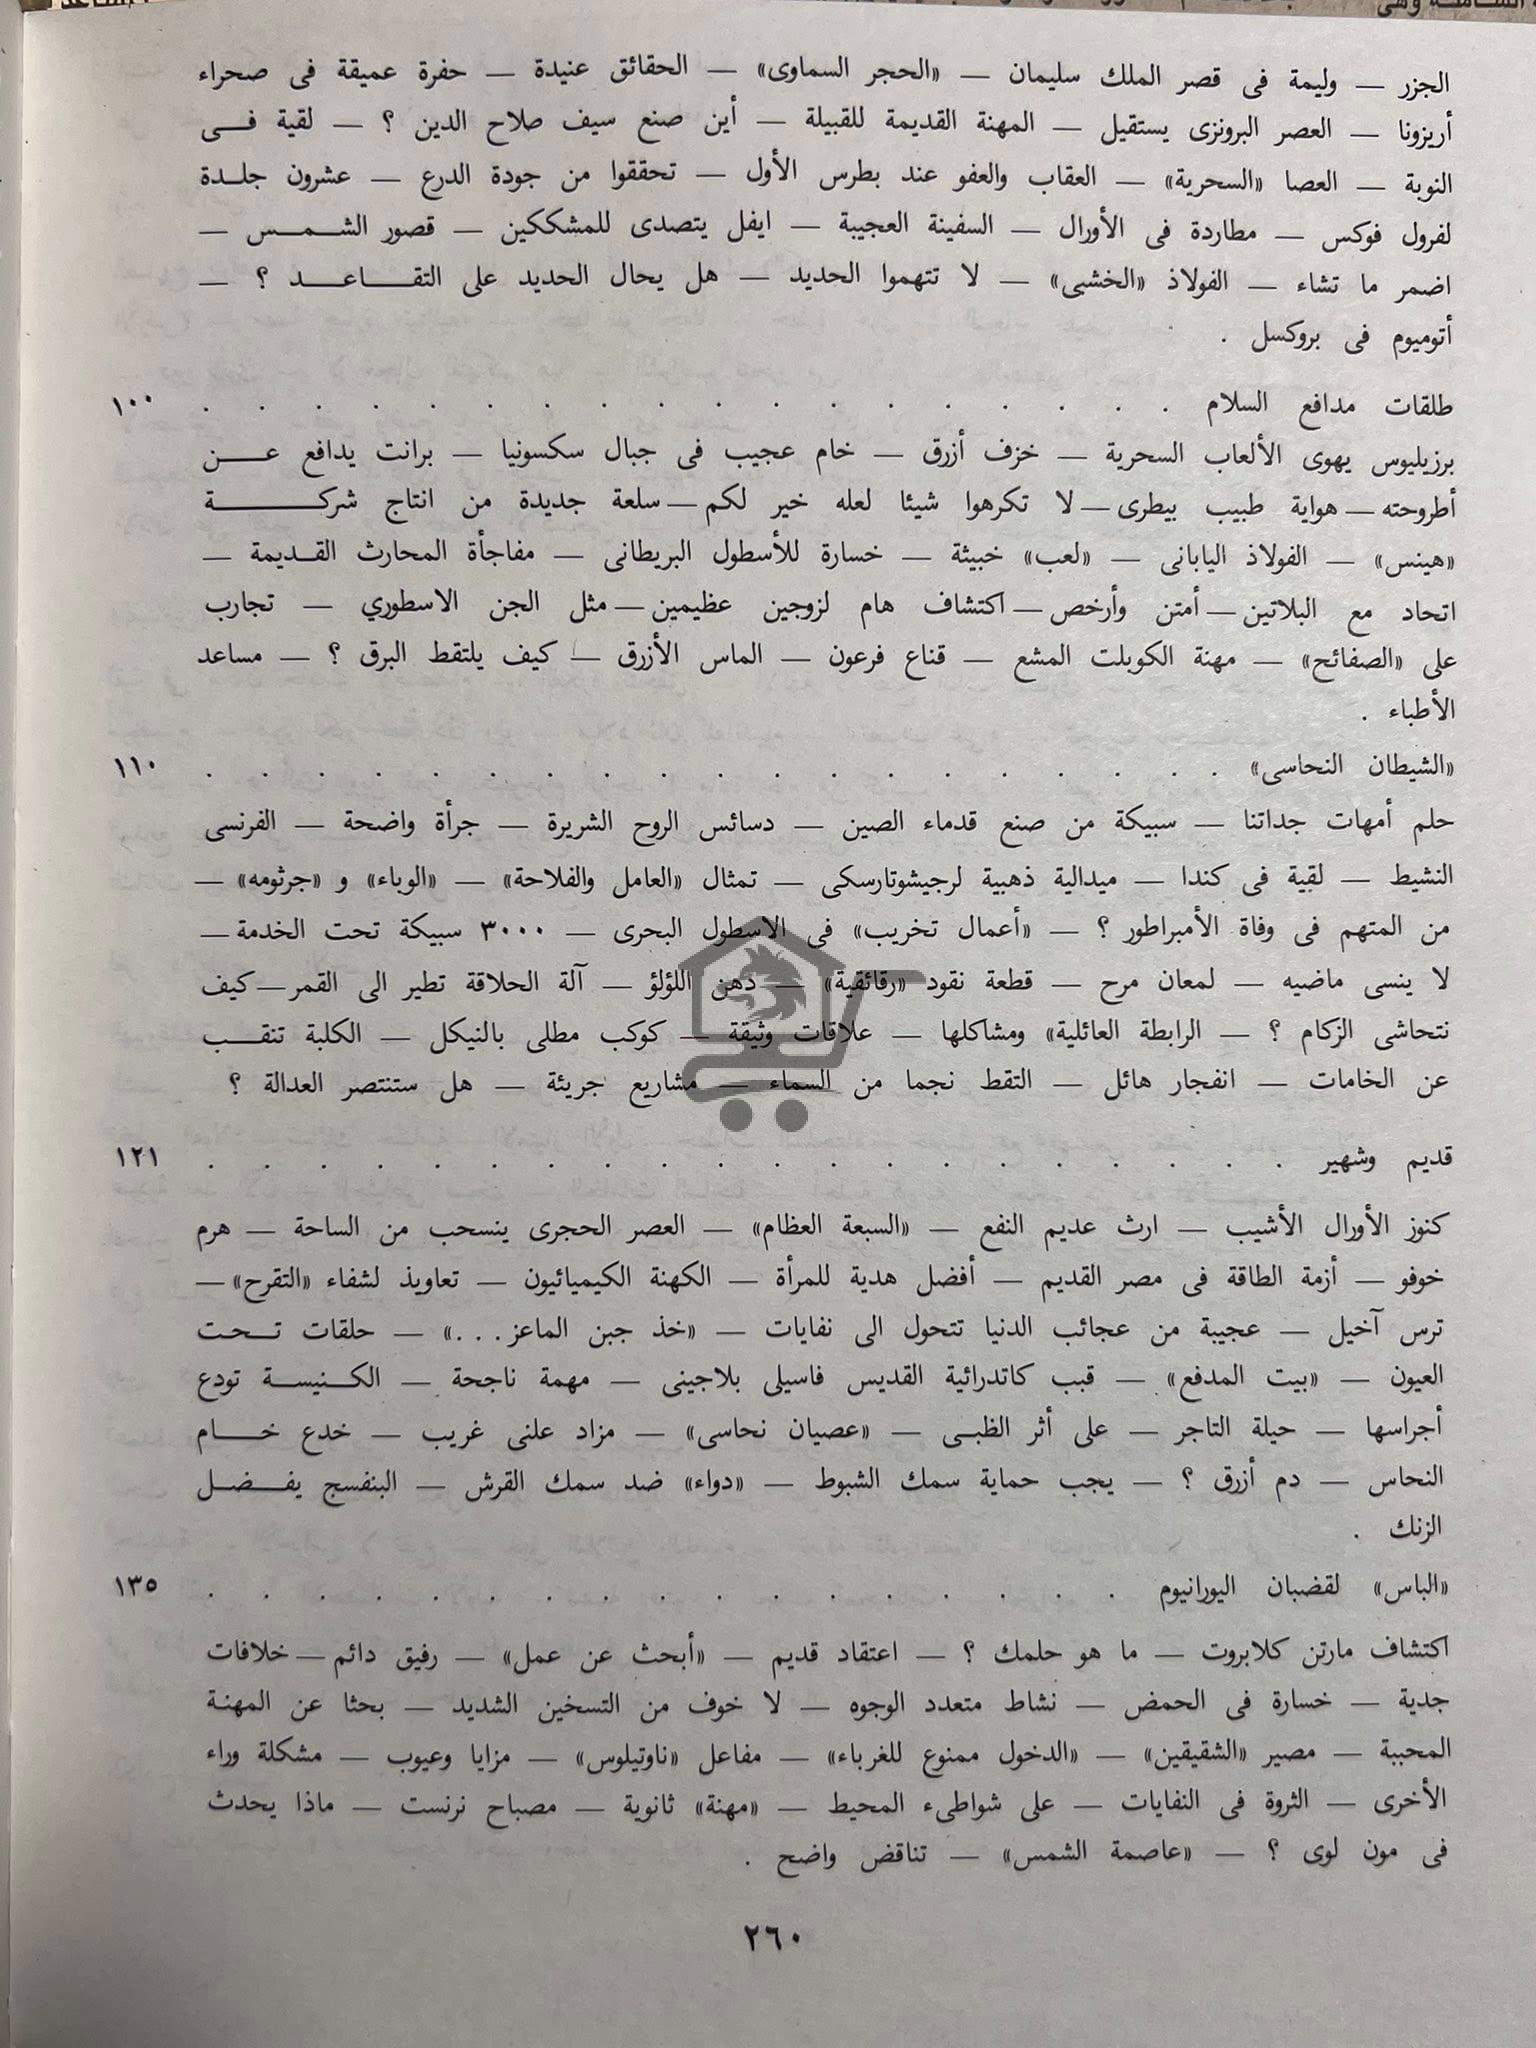 الجزر — وليمة فى قصر الملك سليمان — «الحجر السماوى» — الحقائق عنيدة — حفرة عميقة فى صحراء
أريزونا — العصر البرونزى يستقيل — المهنة القديمة للقبيلة — أين صنع سيف صلاح الدين ؟ — لقية فى
النوبة — العصا «السحرية» — العقاب والعفو عند بطرس الأول — تحققوا من جودة الدرع — عشرون جلدة
لفرول فوكس — مطاردة فى الأورال — السفينة العجيبة — ايفل يتصدى للمشككين — قصور الشمس —
اضمر ما تشاء — الفولاذ «الخشبى» — لا تتهموا الحديد — هل يحال الحديد على التقاعد ؟ —
أتوميوم فى بروكسل .
طلقات مدافع السلام . . . . . . . . . . . . . . . . . . ١٠٠
برزيليوس يهوى الألعاب السحرية — خزف أزرق — خام عجيب فى جبال سكسونيا — برانت يدافع عن
أطروحته — هواية طبيب بيطرى — لا تكرهوا شيئا لعله خير لكم — سلعة جديدة من انتاج شركة
«هينس» — الفولاذ اليابانى — «لعب» خبيثة — خسارة للأسطول البريطانى — مفاجأة المحارث القديمة —
اتحاد مع البلاتين — أمتن وأرخص — اكتشاف هام لزوجين عظيمين — مثل الجن الاسطوري — تجارب
على «الصفائح» — مهنة الكوبلت المشع — قناع فرعون — الماس الأزرق — كيف يلتقط البرق ؟ — مساعد
الأطباء .
«الشيطان النحاسى» . . . . . . . . . . . . . . . . . . ١١٠
حلم أمهات جداتنا — سبيكة من صنع قدماء الصين — دسائس الروح الشريرة — جرأة واضحة — الفرنسى
النشيط — لقية فى كندا — ميدالية ذهبية لرجيشوتارسكى — تمثال «العامل والفلاحة» — «الوباء» و «جرثومه» —
من المتهم فى وفاة الأمبراطور ؟ — «أعمال تخريب» فى الاسطول البحرى — ٣٠٠٠ سبيكة تحت الخدمة —
لا ينسى ماضيه — لمعان مرح — قطعة نقود «رقائقية» — دهن اللؤلؤ — آلة الحلاقة تطير الى القمر — كيف
نتحاشى الزكام ؟ — الرابطة العائلية» ومشاكلها — علاقات وثيقة — كوكب مطلى بالنيكل — الكلبة تنقب
عن الخامات — انفجار هائل — التقط نجما من السماء — مشاريع جريئة — هل ستنتصر العدالة ؟
قديم وشهير . . . . . . . . . . . . . . . . . . . . ١٢١
كنوز الأورال الأشيب — ارث عديم النفع — «السبعة العظام» — العصر الحجرى ينسحب من الساحة — هرم
خوفو — أزمة الطاقة فى مصر القديم — أفضل هدية للمرأة — الكهنة الكيميائيون — تعاويذ لشفاء «التقرح» —
ترس آخيل — عجيبة من عجائب الدنيا تتحول الى نفايات — «خذ جبن الماعز...» — حلقات تحت
العيون — «بيت المدفع» — قبب كاتدرائية القديس فاسيلى بلاجينى — مهمة ناجحة — الكنيسة تودع
أجراسها — حيلة التاجر — على أثر الظبى — «عصيان نحاسى» — مزاد علنى غريب — خدع خام
النحاس — دم أزرق ؟ — يجب حماية سمك الشبوط — «دواء» ضد سمك القرش — البنفسج يفضل
الزنك .
«الباس» لقضبان اليورانيوم . . . . . . . . . . . . . . . . . ١٣٥
اكتشاف مارتن كلابروت — ما هو حلمك ؟ — اعتقاد قديم — «أبحث عن عمل» — رفيق دائم — خلافات
جدية — خسارة فى الحمض — نشاط متعدد الوجوه — لا خوف من التسخين الشديد — بحثا عن المهنة
المحببة — مصير «الشقيقين» — «الدخول ممنوع للغرباء» — مفاعل «ناوتيلوس» — مزايا وعيوب — مشكلة وراء
الأخرى — الثروة فى النفايات — على شواطىء المحيط — «مهنة» ثانوية — مصباح نرنست — ماذا يحدث
فى مون لوى ؟ — «عاصمة الشمس» — تناقض واضح .
٢٦٠